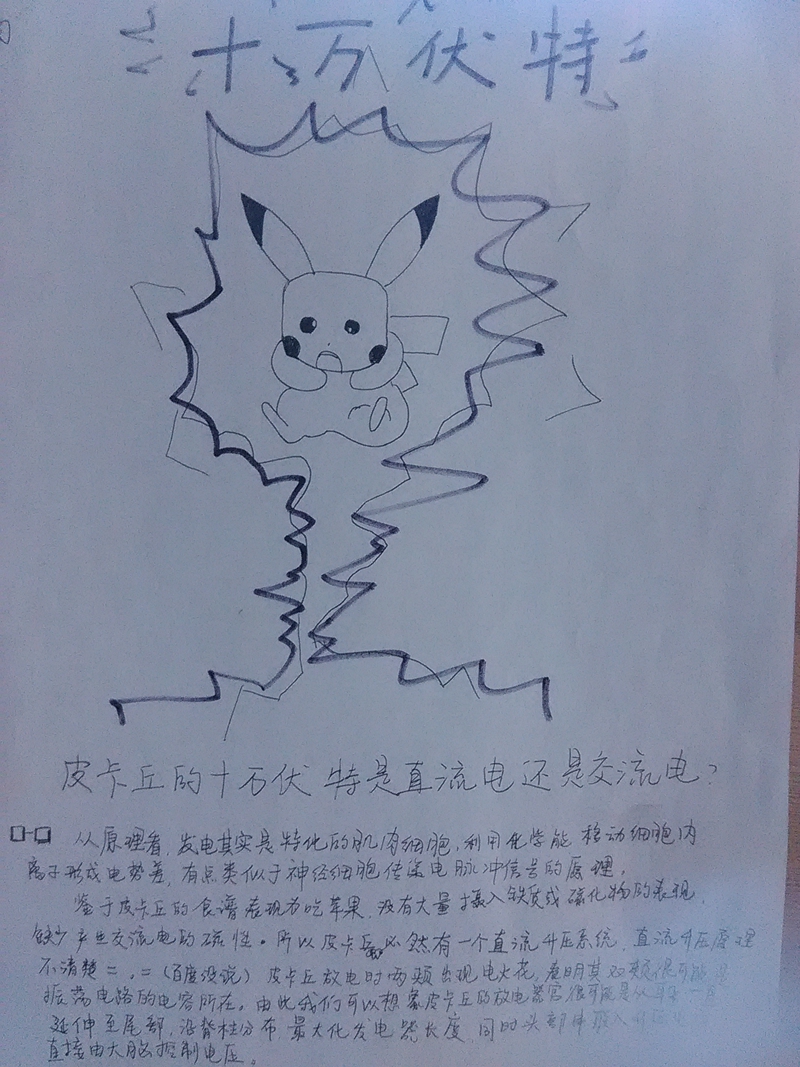 十万伏特
皮卡丘的十万伏特是直流电还是交流电?
从原理看,发电其实是特化的肌肉细胞,利用化学能移动细胞内
离子形成电势差,有点类似于神经细胞传递电脉冲信号的原理。
鉴于皮卡丘的食谱表现为吃苹果,没有大量摄入铁质或磁化物的表现,
缺少产生交流电的磁性。所以皮卡丘必然有一个直流升压系统,直流升压原理
不清楚=.=(百度没说)皮卡丘放电时两颊出现电火花,表明其双颊很可能是
振荡电路的电容所在。由此我们可以想象皮卡丘的放电器官很可能是从耳
延伸至尾部,沿脊柱分布,最大化发电器长度,同时头部
直接由大脑控制电压。